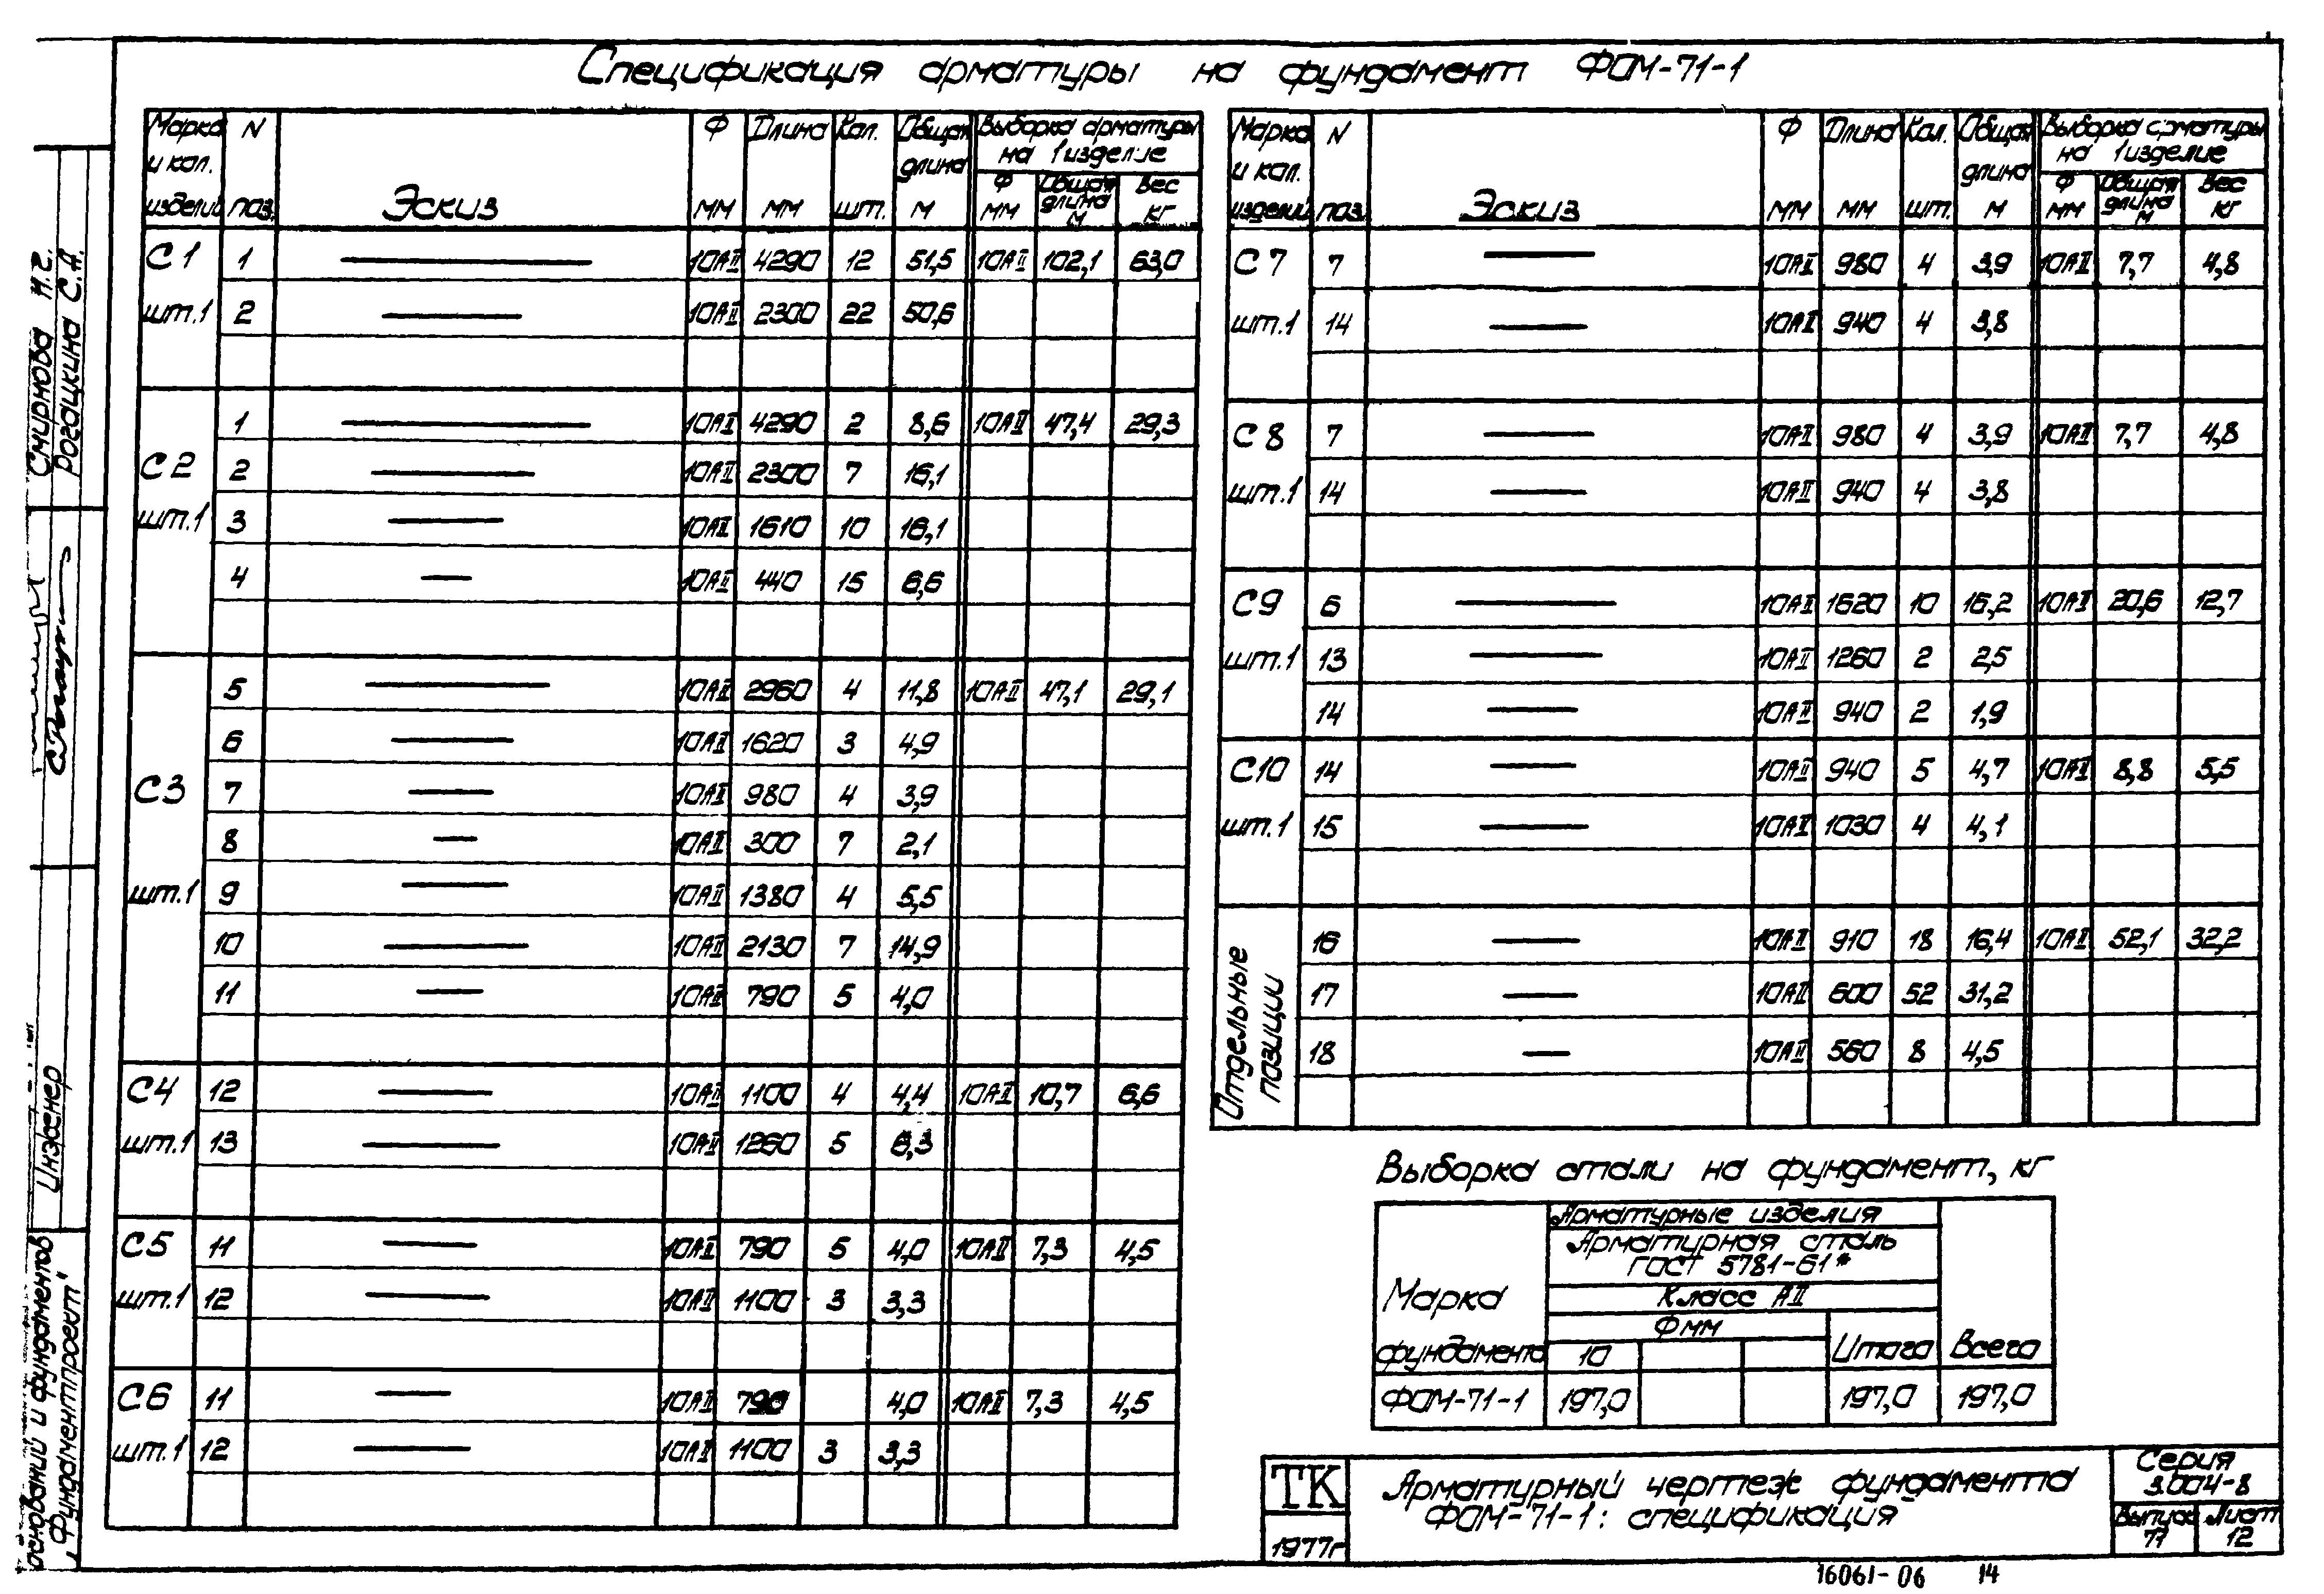 Спецификация арматуры на фундамент ФОМ-71-1
Марка и кол. изделий N поз. Эскиз Ф мм Длина мм Кол. шт. Общая длина м Выборка арматуры на 1 изделие Ф мм Общая длина м Вес кг
С1 1 10АII 4290 12 51,5 10АII 102,1 63,0
шт.1 2 10АII 2300 22 50,6
1 10АII 4290 2 8,6 10АII 47,4 29,3
С2 2 10АII 2300 7 16,1
шт.1 3 10АII 1610 10 16,1
4 10АII 440 15 6,6
5 10АII 2960 4 11,8 10АII 47,1 29,1
6 10АII 1620 3 4,9
С3 7 10АII 980 4 3,9
8 10АII 300 7 2,1
шт.1 9 10АII 1380 4 5,5
10 10АII 2130 7 14,9
11 10АII 790 5 4,0
С4 12 10АII 1100 4 4,4 10АII 10,7 6,6
шт.1 13 10АII 1260 5 6,3
С5 11 10АII 790 5 4,0 10АII 7,3 4,5
шт.1 12 10АII 1100 3 3,3
С6 11 10АII 790 4,0 10АII 7,3 4,5
шт.1 12 10АII 1100 3 3,3
Марка и кол. изделий N поз. Эскиз Ф мм Длина мм Кол. шт. Общая длина м Выборка арматуры на 1 изделие Ф мм Общая длина м Вес кг
С7 7 10АII 980 4 3,9 10АII 7,7 4,8
шт.1 14 10АII 940 4 3,8
С8 7 10АII 980 4 3,9 10АII 7,7 4,8
шт.1 14 10АII 940 4 3,8
С9 6 10АII 1620 10 16,2 10АII 20,6 12,7
шт.1 13 10АII 1260 2 2,5
14 10АII 940 2 1,9
С10 14 10АII 940 5 4,7 10АII 8,8 5,5
шт.1 15 10АII 1030 4 4,1
Отдельные позиции
16 10АII 910 18 16,4 10АII 52,1 32,2
17 10АII 600 52 31,2
18 10АII 560 8 4,5
Выборка стали на фундамент, кг
Марка фундамента
Арматурные изделия
Арматурная сталь
ГОСТ 5781-61*
Класс АII
Фмм
10 Итого Всего
ФОМ-71-1 197,0 197,0 197,0
ТК
1977г
Арматурный чертеж фундамента
ФОМ-71-1: спецификация
Серия
3.004-8
Выпуск 71
Лист 12
16061-06 14
Смирнова Н.С.
Рогацкина С.А.
Инженер
оснований и фундаментов
"Фундаментпроект"